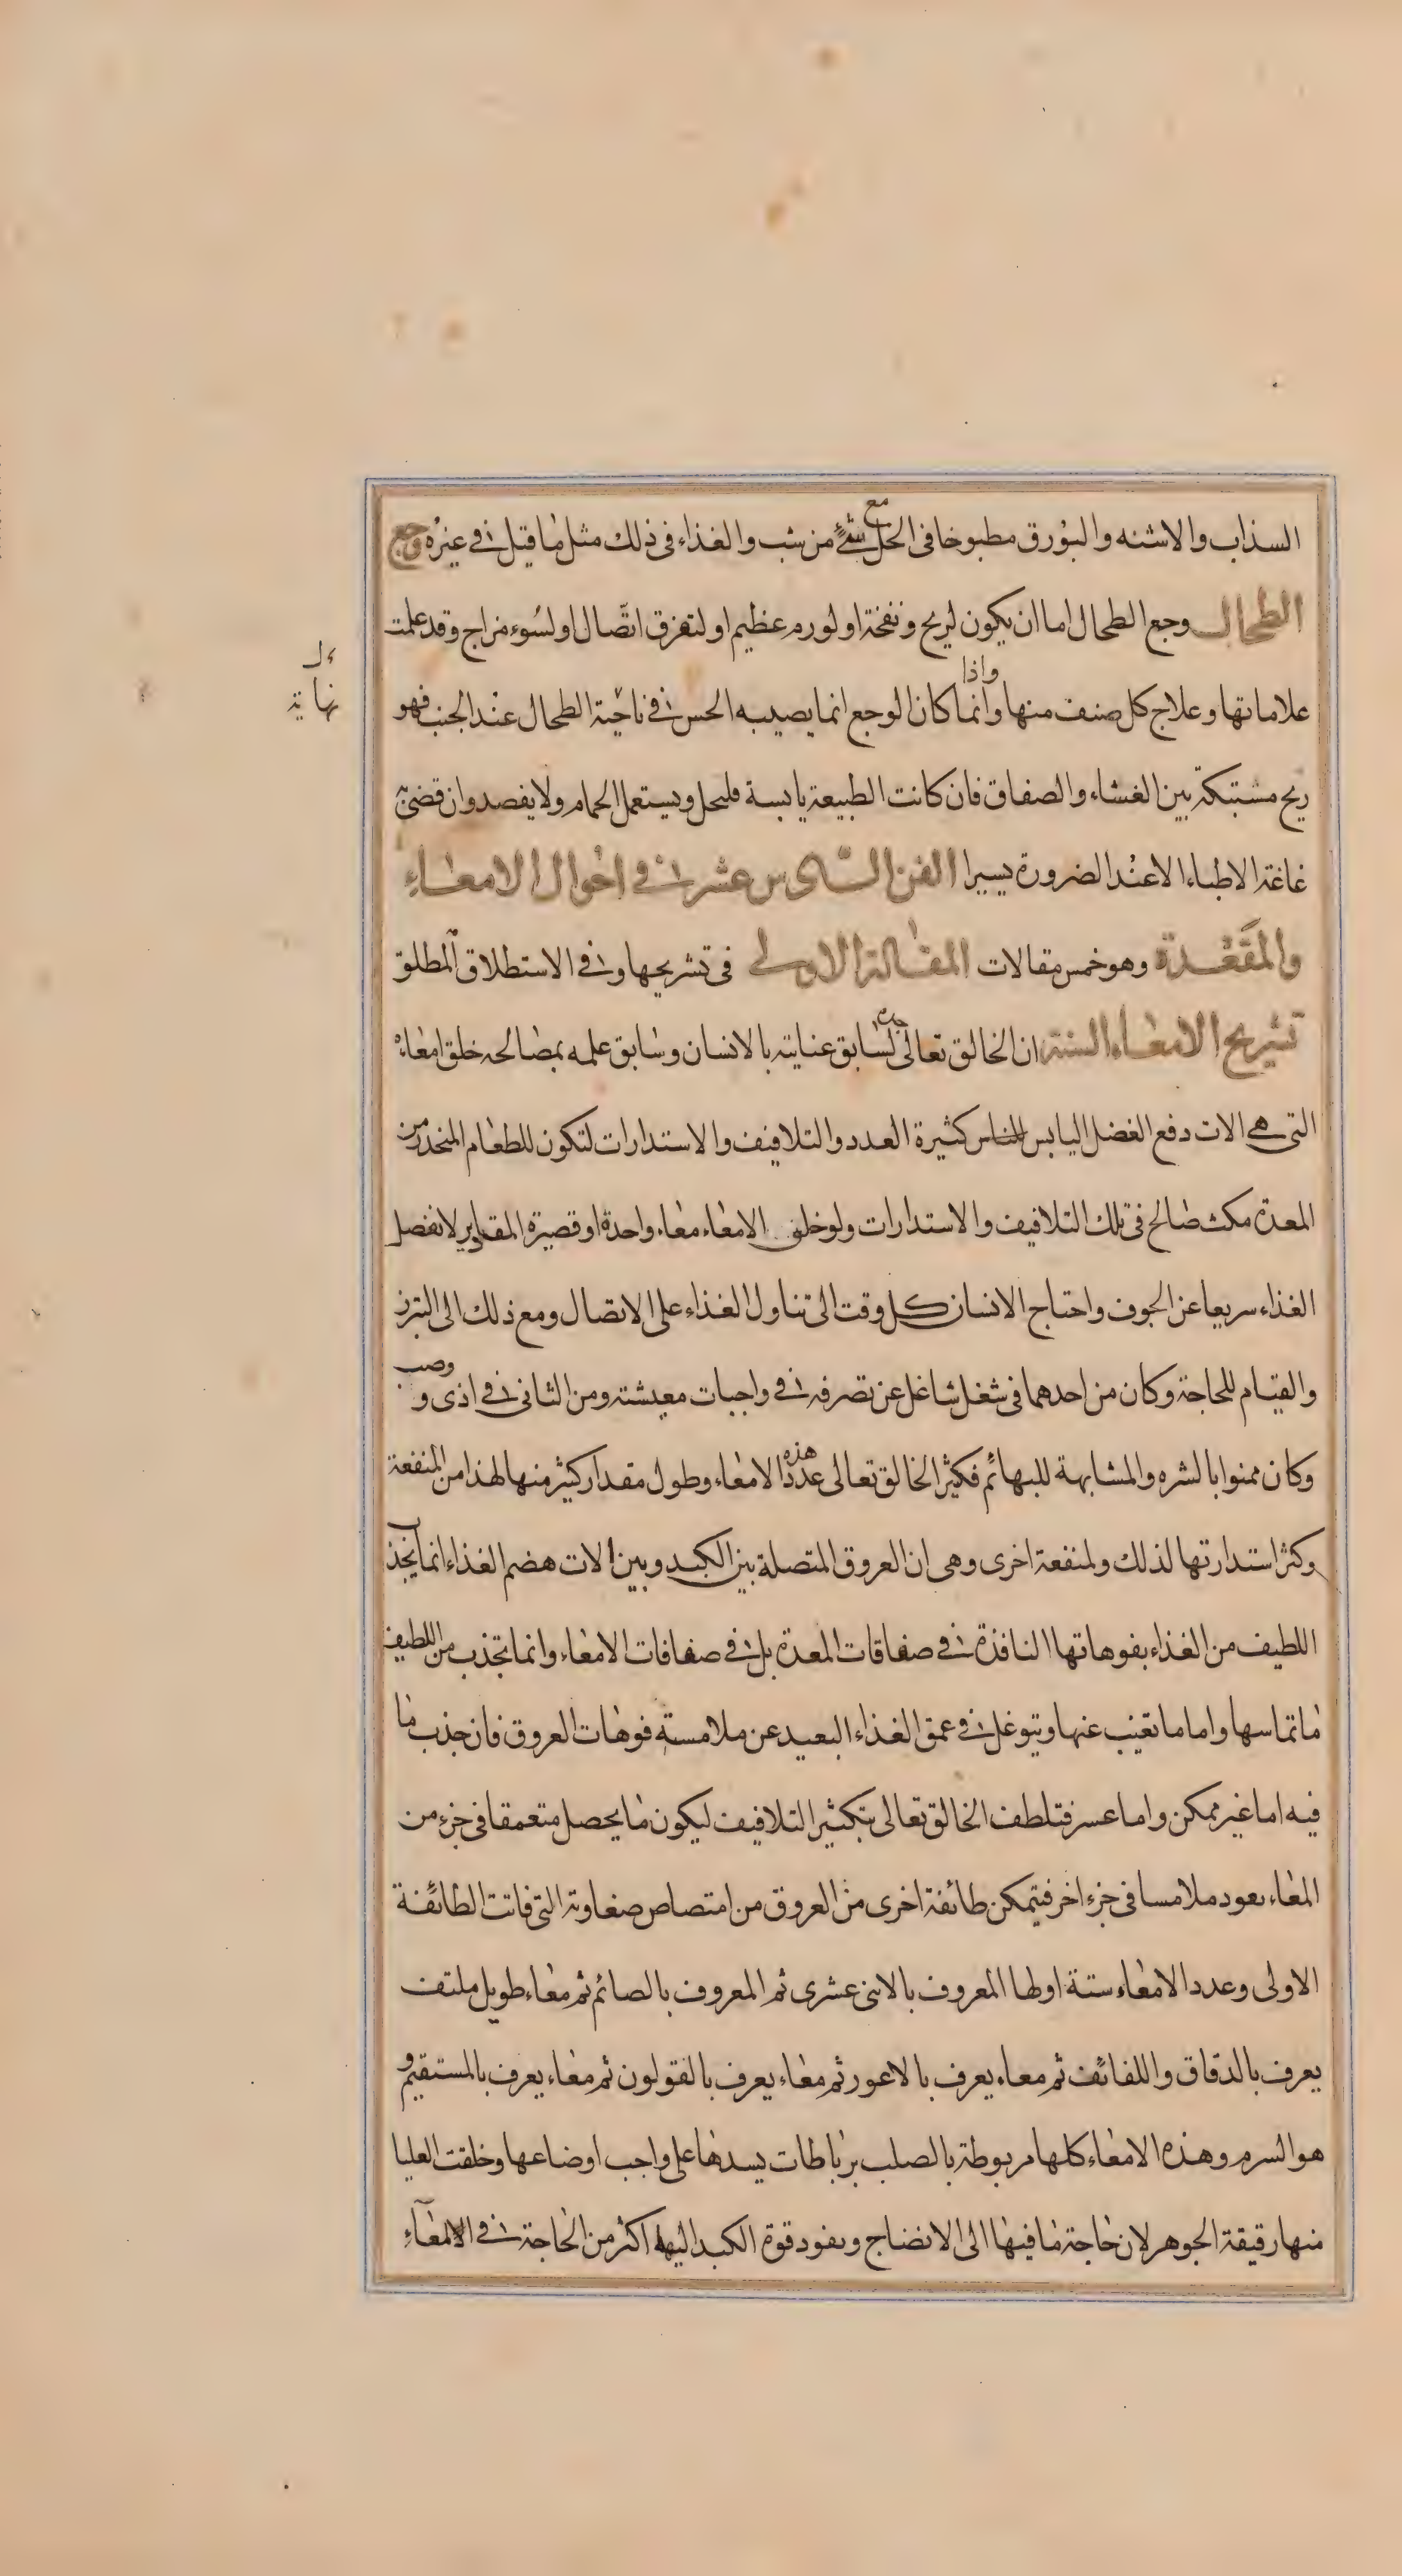 السذاب والاشنه والبورق مطبوخا فى الخل مع شئ من شب والغذاء فى ذلك مثل ما قيل فى غيره وجع
الطحال وجع الطحال اما ان يكون لريح ونفخة او لورم عظيم او لتفرق اتصال او لسوء مزاج وقد علمت
علاماتها وعلاج كل صنف منها واذا وانما كان الوجع انما يصيبه الحس فى ناحية الطحال عند الجنب فهو
ريح مشتبكة بين الغشاء والصفاق فان كانت الطبيعة يابسة فليحل ويستعمل الحمام ولا يفصد وان قضى به
غاغة الاطباء الا عند الضرورة يسيرا الفن السادس عشر فى احوال الامعاء
والمقعدة وهو خمس مقالات المقالة الاولى فى تشريحها وفى الاستطلاق المطلق
تشريح الامعاء الستة ان الخالق تعالى لسابق عنايته بالانسان وسابق علمه بمصالحه خلق امعاءه
التى هى الات دفع الفضل اليابس كثيرة العدد والتلافيف والاستدارات لتكون للطعام المنحدر من
المعدة مكث صالح فى تلك التلافيف والاستدارات ولو خلق الامعاء معاء واحدة او قصيرة المقادير لانفصل
الغذاء سريعا عن الجوف واحتاج الانسان كل وقت الى تناول الغذاء على الاتصال ومع ذلك الى التبرز
والقيام للحاجة وكان من احدهما فى شغل شاغل عن تصرفه فى واجبات معيشته ومن الثانى فى اذى و وصب
وكان ممنوا بالشره والمشابهة للبهائم فكثر الخالق تعالى عدد هذه الامعاء وطول مقدار كثير منها لهذا من المنفعة
وكثر استدارتها لذلك ولمنفعة اخرى وهى ان العروق المتصلة بين الكبد وبين الات هضم الغذاء انما يجذب
اللطيف من الغذاء بفوهاتها النافذة فى صفاقات المعدة بل فى صفاقات الامعاء وانما تجذب من اللطيف
ما تماسها واما ما تغيب عنها ويتوغل فى عمق الغذاء البعيد عن ملامسة فوهات العروق فان جذب ما
فيه اما غير ممكن واما عسر فتلطف الخالق تعالى بتكثير التلافيف ليكون ما يحصل متعمقا فى جزء من
المعاء يعود ملامسا فى جزء اخر فيتمكن طائفة اخرى من العروق من امتصاص صفاوته التى فاتت الطائفة
الاولى وعدد الامعاء ستة اولها المعروف بالاثنى عشرى ثم المعروف بالصائم ثم معاء طويل ملتف
يعرف بالدقاق واللفائف ثم معاء يعرف بالاعور ثم معاء يعرف بالقولون ثم معاء يعرف بالمستقيم و
هو السرم وهذه الامعاء كلها مربوطة بالصلب برباطات يسدها على واجب اوضاعها وخلقت العليا
منها رقيقة الجوهر لان حاجة ما فيها الى الانضاج ونفود قوة الكبد اليها اكثر من الحاجة فى الامعاء
نهاية